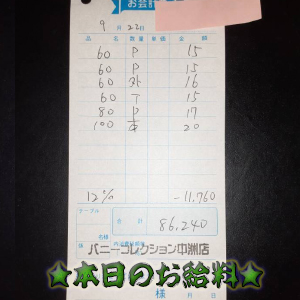 お会計
9月22日
品名 数量 単価 金額
60 P 15
60 P 15
60 外 16
60 T 15
80 P 17
100 本 20
12% -11,760
テーブル
合計 86,240
名様
バニーコレクション中洲店
★本日のお給料★
様 月 日